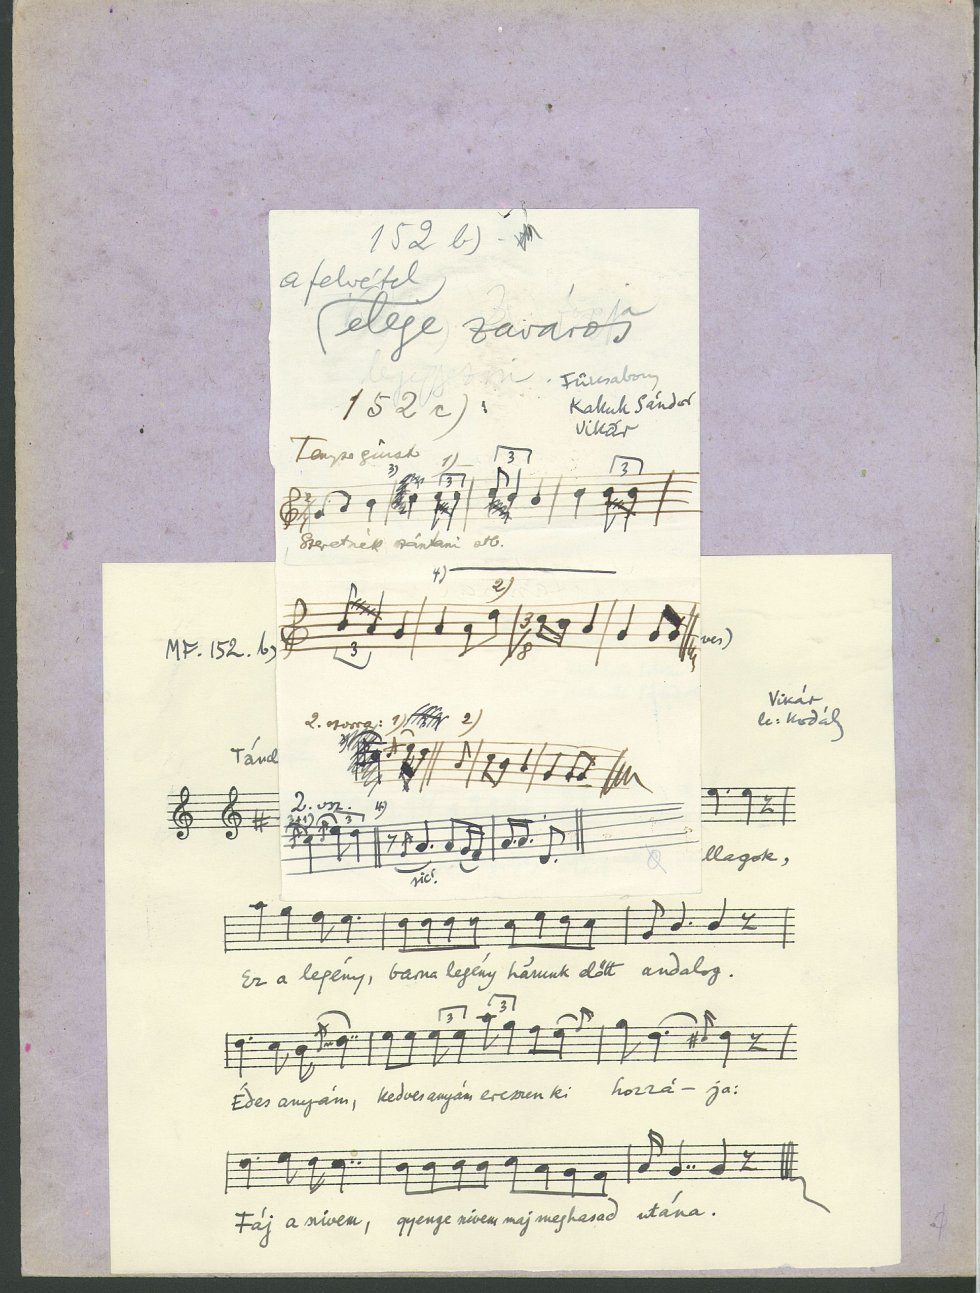 152 b)
a felvétel
eléje zavaros
152 c):
Kakuk Sándor
Vikár
Tempo giusto
3) 1) 3 3 3
Szeretnék szántani stb.
4) 2)
3
8
3
MF. 152. b)
ves)
Vikár
le: Kodály
2. 1) 2)
Tánd
2. vsz. 4)
3
sic!
llagok,
Ez a legény, barna legény hárunk előtt andalog.
3 3
Édes anyám, kedves anyám eresszen ki hozzá – ja:
Fáj a szivem, gyenge szivem maj meghasad utána.